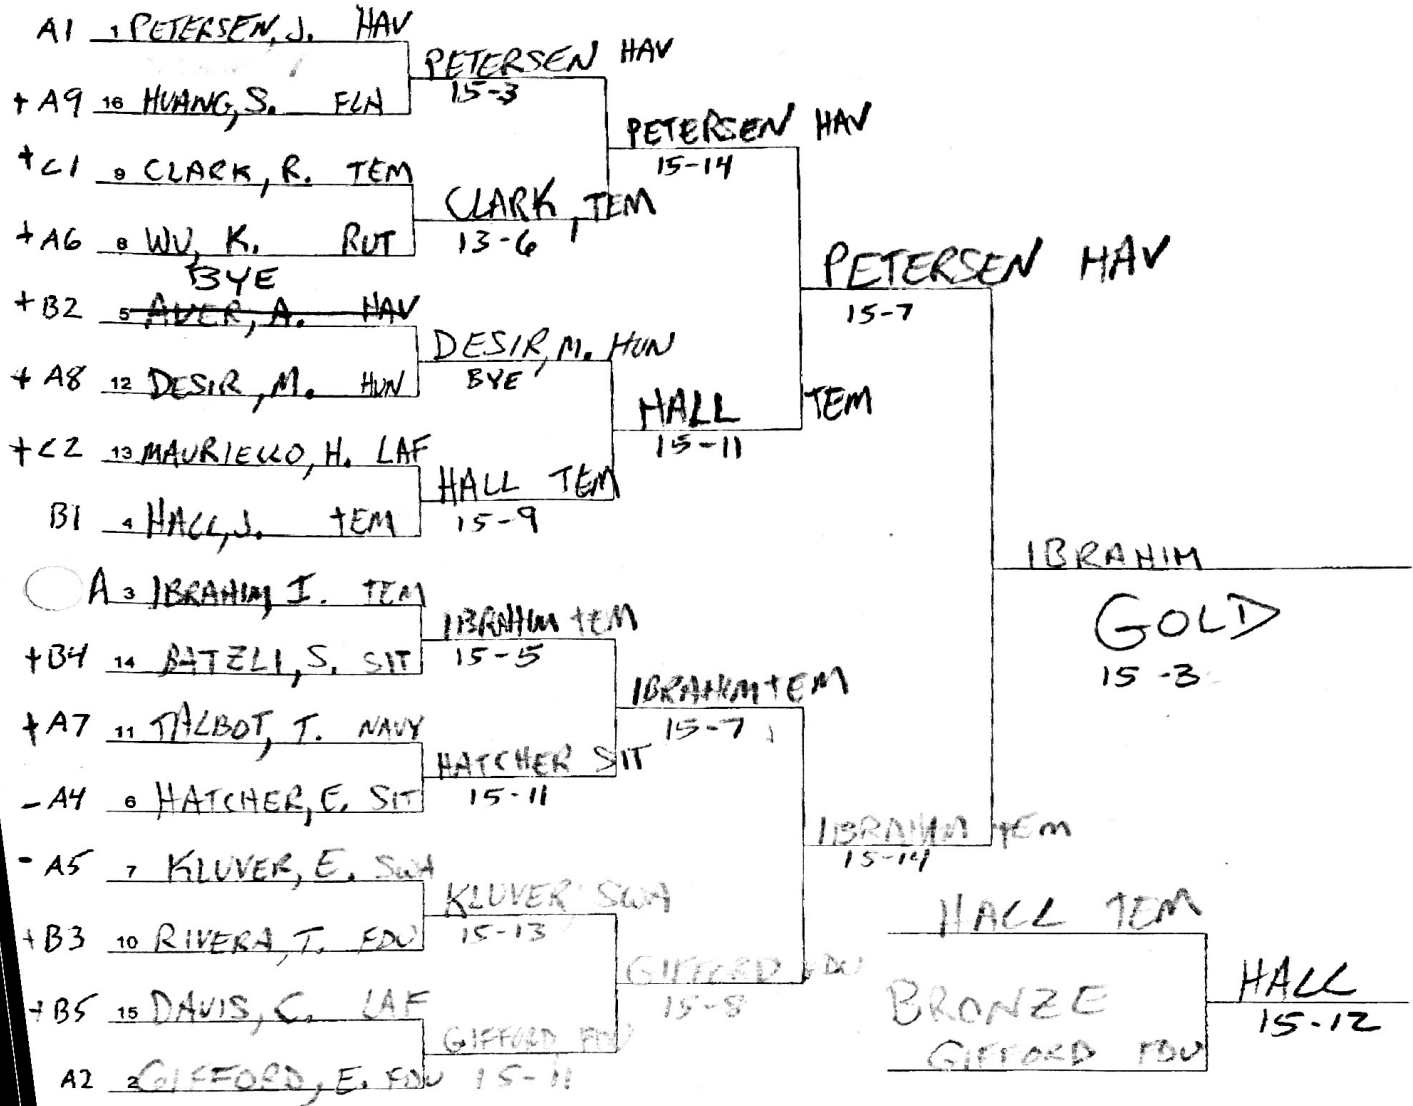 A1 1 PETERSEN, J. HAV
+ A9 16 HUANG, S.
+C1 9 CLARK, R. TEM
+A6 8 WU, K. RUT
BYE
+B2 5 AUER, A. HAV
+ A8 12 DESIR, M. HUN
+C2 13 MAURIELLO, H. LAF
B1 4 HALL, J. TEM
A 3 IBRAHIM, I. TEM
+B4 14 BATZLI, S. SIT
+A7 11 TALBOT, T. NAVY
-A4 6 HATCHER, E. SIT
- A5 7 KLUVER, E. SWA
+B3 10 RIVERA, T. FDU
+B5 15 DAVIS, C. LAF
A2 2 GIFFORD, E. FDU
PETERSEN HAV
15-3
CLARK, TEM
13-6
DESIR, M. HUN
BYE
HALL TEM
15-9
IBRAHIM TEM
15-5
HATCHER SIT
15-11
KLUVER SWA
15-13
GIFFORD FDU
15-11
PETERSEN HAV
15-14
HALL TEM
15-11
IBRAHIM TEM
15-7
GIFFORD FDU
15-8
PETERSEN HAV
15-7
IBRAHIM TEM
15-14
IBRAHIM
GOLD
15-3
HALL TEM
BRONZE
GIFFORD FDU
HALL
15-12